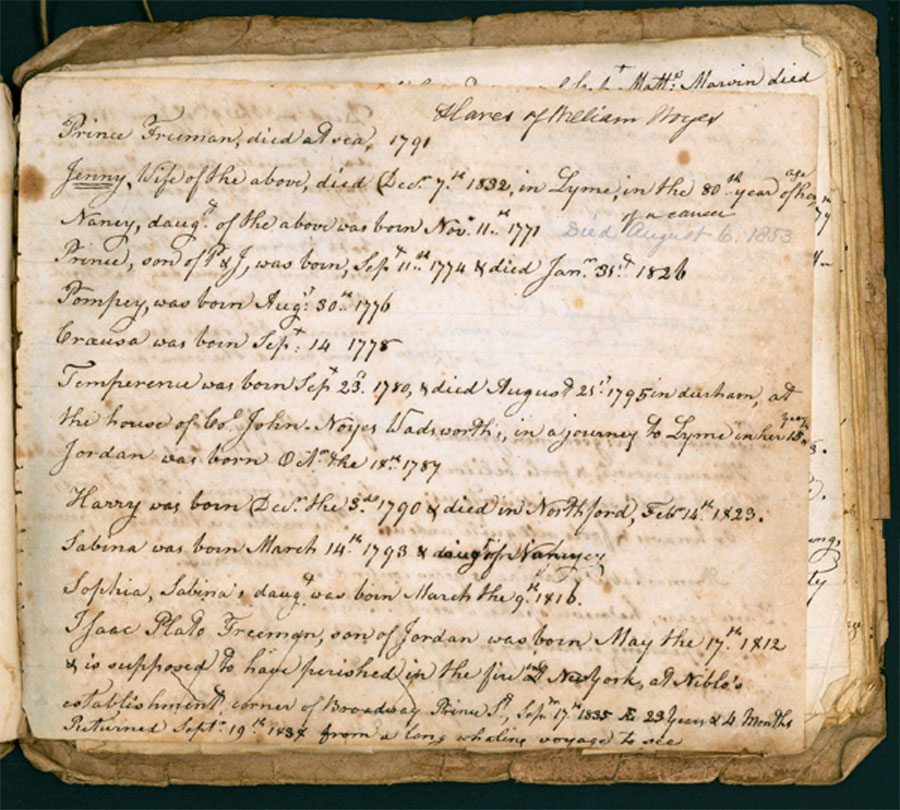 Matt.s Marvin died
Slaves of William Noyes
Prince Freeman, died at sea, 1791
Jenny, Wife of the above, died Dec.r 7.th 1832, in Lyme, in the 80.th year of her age
Nancy, daug.t of the above was born Nov. 11.th 1771 Died August 6. 1853 of a cancer
Prince, son of P & J, was born, Sep.t 11.th 1774 & died Jan.y 31.st 1826
Pompey, was born Aug.t 30.th 1776
Crausa was born Sep.t 14 1778
Temperence was born Sep.t 23.d 1780, & died August 21.st 1795 in durham, at
the house of Co.l John Noyes Wadsworth's, in a journey to Lyme in her 15. year
Jordan was born Oct.r the 18.th 1787
Harry was born Dec.r the 3.rd 1790 & died in Northford, Feb.y 14.th 1823.
Sabina was born March 14.th 1793 & daug.t of Nancy
Sophia, Sabina's daug.t was born March the 9.th 1816.
Isaac Plato Freeman, son of Jordan was born May the 17.th 1812
& is supposed to have perished in the fire at New York, at Niblo's
establishment, corner of Broadway Prince S.t, Sep.r 17.th 1835 Æ 23 Years & 4 Months
Returned Sept.r 19.th 1837 from a long whaling voyage to see